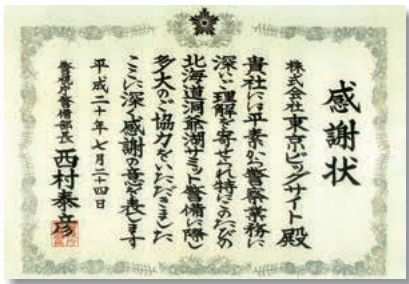 感謝状
株式会社東京ビッグサイト殿
貴社には平素から警察業務に
深いご理解を寄せられ特にこのたびの
北海道洞爺湖サミット警備に際し
多大のご協力をいただきました
ここに深く感謝の意を表します
平成二十年七月二十四日
警視庁警備部長 西村泰彦